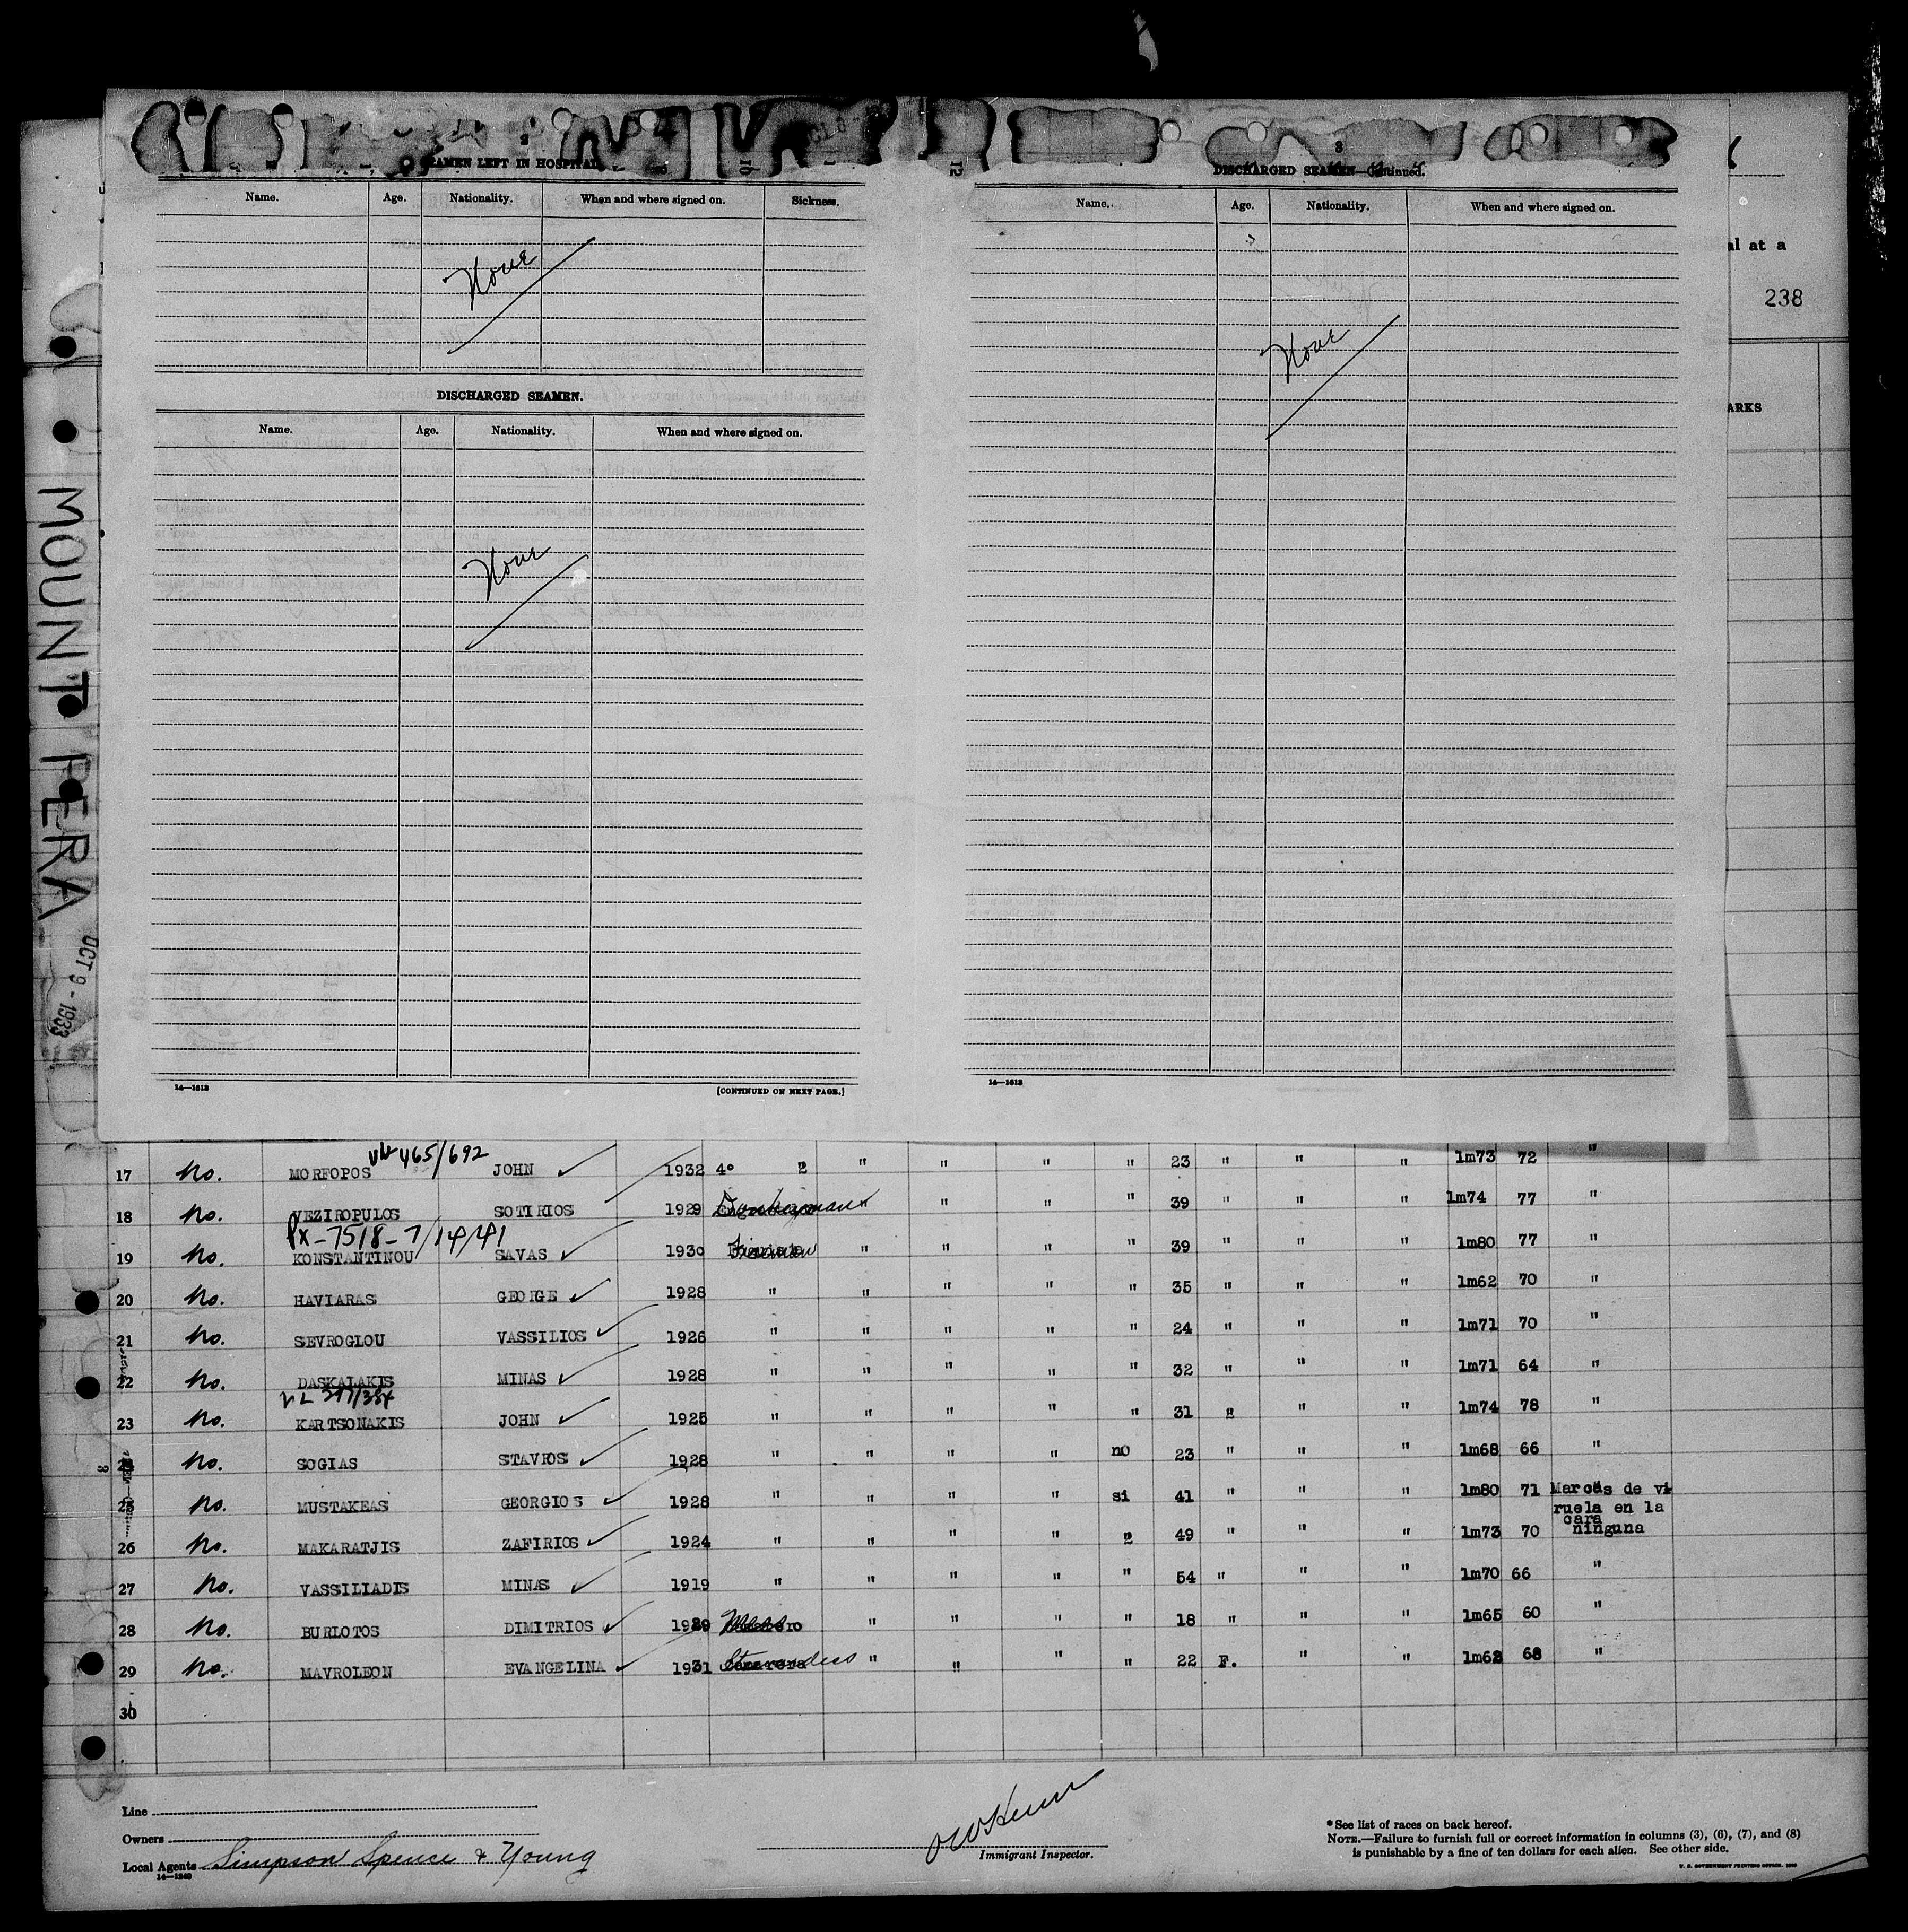 SEAMEN LEFT IN HOSPITAL
Name. Age. Nationality. When and where signed on. Sickness.
None
DISCHARGED SEAMEN.
Name. Age. Nationality. When and where signed on.
None
14—1613 [CONTINUED ON NEXT PAGE.]
8
DISCHARGED SEAMEN—Continued.
Name. Age. Nationality. When and where signed on.
None
14—1613
al at a
238
ARKS
MOUNT PERA
OCT 9 - 1933
465/692
17 No. MORFOPOS JOHN 1932 4o " " " " 23 " " " 1m73 72 "
18 No. VEZIROPULOS SOTIRIOS 1929 Donkeyman " " " " 39 " " " 1m74 77 "
PX-7518-7/14/41
19 No. KONSTANTINOU SAVAS 1930 Fireman " " " " 39 " " " 1m80 77 "
20 No. HAVIARAS GEORGE 1928 " " " " " 35 " " " 1m62 70 "
21 No. SEVROGLOU VASSILIOS 1926 " " " " " 24 " " " 1m71 70 "
22 No. DASKALAKIS MINAS 1928 " " " " " 32 " " " 1m71 64 "
23 No. KARTSONAKIS JOHN 1925 " " " " " 31 " " " 1m74 78 "
24 No. SOGIAS STAVROS 1928 " " " " no 23 " " " 1m68 66 "
25 No. MUSTAKEAS GEORGIOS 1928 " " " " si 41 " " " 1m80 71 Marcas de vi
ruela en la
cara
26 No. MAKARATJIS ZAFIRIOS 1924 " " " " " 49 " " " 1m73 70 ninguna
27 No. VASSILIADIS MINAS 1919 " " " " " 54 " " " 1m70 66 "
28 No. BURLOTOS DIMITRIOS " " " " 18 " " " 1m65 60 "
29 No. MAVROLEON EVANGELINA 1931 " " " " 22 F. " " 1m62 68 "
30
Line
Owners
Local Agents Simpson Spence & Young
14—1240
Immigrant Inspector.
* See list of races on back hereof.
NOTE.—Failure to furnish full or correct information in columns (3), (6), (7), and (8)
is punishable by a fine of ten dollars for each alien. See other side.
U. S. GOVERNMENT PRINTING OFFICE